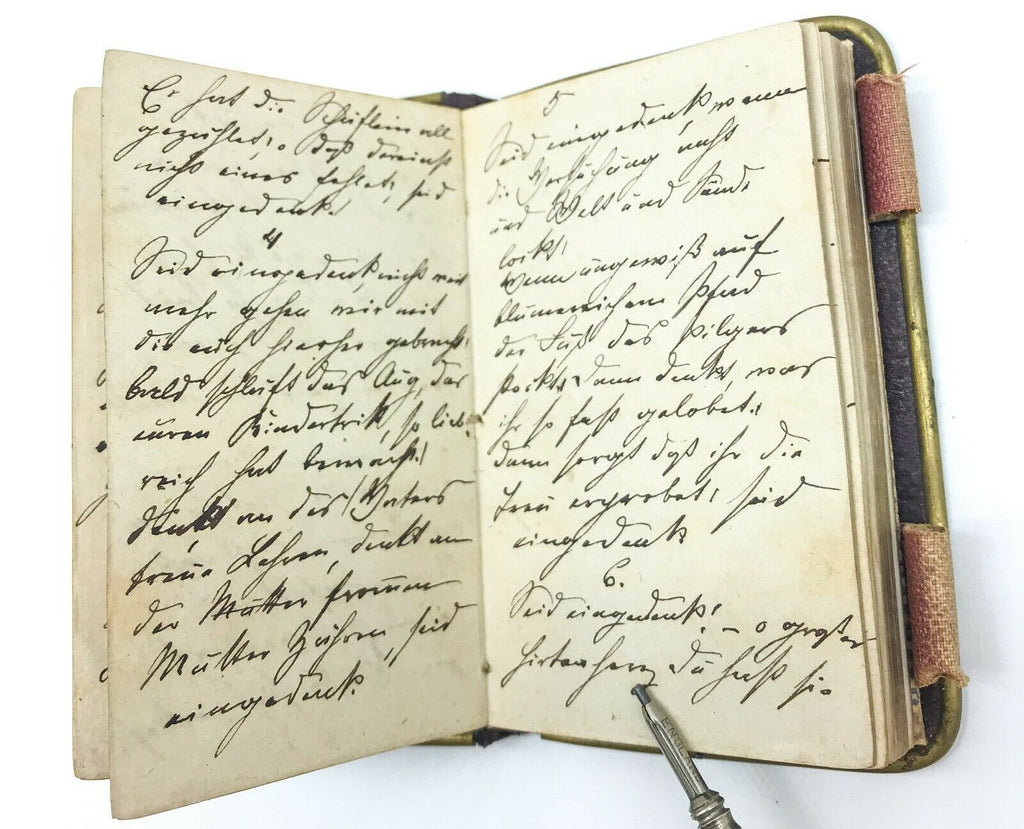 Er hat die Schäflein all
gezählet, o daß dereinst
nicht eines fehlet, seid
eingedenk!
4
Seid eingedenk, nicht weit
mehr gehen wir mit
die euch hierher gebracht,
bald schläft das Aug, das
euren Kindertritt, so lieb-
reich hat bewacht!
denkt an des Vaters
treue Lehren, denkt an
der Mutter frommen
Mutter Zähren, seid
eingedenk.
5
Seid eingedenk, wenn
die Versuchung naht
und Welt und Sünde
lockt,
wenn ungewiß auf
blumreichem Pfad
der Fuß des Pilgers
stockt, dann denkt, was
ihr so fest gelobet,
dann sorgt daß ihr die
Treu erprobet, seid
eingedenk
6.
Seid eingedenk! – o großer
Hirtenherz du hast sie